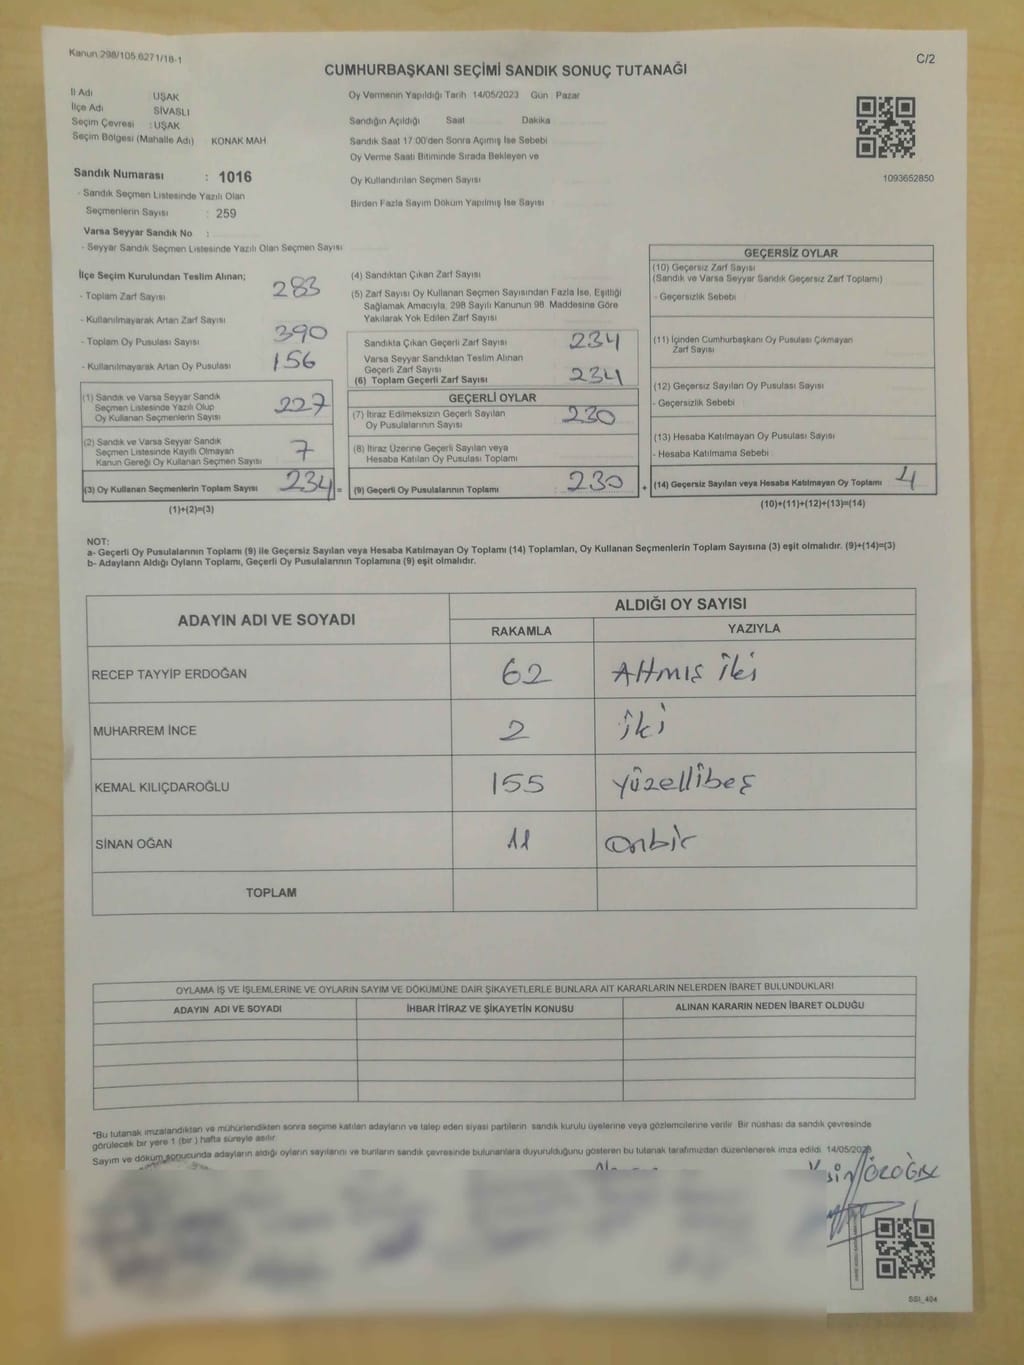 Kanun 298/105 6271/18-1
C/2
CUMHURBAŞKANI SEÇİMİ SANDIK SONUÇ TUTANAĞI
İl Adı UŞAK
İlçe Adı SİVASLI
Seçim Çevresi : UŞAK
Seçim Bölgesi (Mahalle Adı) KONAK MAH
Sandık Numarası : 1016
- Sandık Seçmen Listesinde Yazılı Olan
Seçmenlerin Sayısı : 259
Varsa Seyyar Sandık No :
- Seyyar Sandık Seçmen Listesinde Yazılı Olan Seçmen Sayısı
Oy Vermenin Yapıldığı Tarih 14/05/2023 Gün Pazar
Sandığın Açıldığı Saat Dakika
Sandık Saat 17:00'den Sonra Açılmış İse Sebebi
Oy Verme Saati Bitiminde Sırada Bekleyen ve
Oy Kullandırılan Seçmen Sayısı
Birden Fazla Sayım Döküm Yapılmış İse Sayısı
1093652850
İlçe Seçim Kurulundan Teslim Alınan;
- Toplam Zarf Sayısı 283
- Kullanılmayarak Artan Zarf Sayısı
- Toplam Oy Pusulası Sayısı 390
- Kullanılmayarak Artan Oy Pusulası 156
(1) Sandık ve Varsa Seyyar Sandık
Seçmen Listesinde Yazılı Olup
Oy Kullanan Seçmenlerin Sayısı 227
(2) Sandık ve Varsa Seyyar Sandık
Seçmen Listesinde Kayıtlı Olmayan
Kanun Gereği Oy Kullanan Seçmen Sayısı 7
(3) Oy Kullanan Seçmenlerin Toplam Sayısı 234 =
(1)+(2)=(3)
(4) Sandıktan Çıkan Zarf Sayısı
(5) Zarf Sayısı Oy Kullanan Seçmen Sayısından Fazla İse, Eşitliği
Sağlamak Amacıyla, 298 Sayılı Kanunun 98. Maddesine Göre
Yakılarak Yok Edilen Zarf Sayısı
Sandıkta Çıkan Geçerli Zarf Sayısı 234
Varsa Seyyar Sandıktan Teslim Alınan
Geçerli Zarf Sayısı
(6) Toplam Geçerli Zarf Sayısı 234
GEÇERLİ OYLAR
(7) İtiraz Edilmeksizin Geçerli Sayılan
Oy Pusulalarının Sayısı 230
(8) İtiraz Üzerine Geçerli Sayılan veya
Hesaba Katılan Oy Pusulası Toplamı
(9) Geçerli Oy Pusulalarının Toplamı 230 +
GEÇERSİZ OYLAR
(10) Geçersiz Zarf Sayısı
(Sandık ve Varsa Seyyar Sandık Geçersiz Zarf Toplamı)
- Geçersizlik Sebebi
(11) İçinden Cumhurbaşkanı Oy Pusulası Çıkmayan
Zarf Sayısı
(12) Geçersiz Sayılan Oy Pusulası Sayısı
- Geçersizlik Sebebi
(13) Hesaba Katılmayan Oy Pusulası Sayısı
- Hesaba Katılmama Sebebi
(14) Geçersiz Sayılan veya Hesaba Katılmayan Oy Toplamı 4
(10)+(11)+(12)+(13)=(14)
NOT:
a- Geçerli Oy Pusulalarının Toplamı (9) ile Geçersiz Sayılan veya Hesaba Katılmayan Oy Toplamı (14) Toplamları, Oy Kullanan Seçmenlerin Toplam Sayısına (3) eşit olmalıdır. (9)+(14)=(3)
b- Adayların Aldığı Oyların Toplamı, Geçerli Oy Pusulalarının Toplamına (9) eşit olmalıdır.
ADAYIN ADI VE SOYADI ALDIĞI OY SAYISI
RAKAMLA YAZIYLA
RECEP TAYYİP ERDOĞAN 62 Altmış iki
MUHARREM İNCE 2 iki
KEMAL KILIÇDAROĞLU 155 yüzellibeş
SİNAN OĞAN 11 onbir
TOPLAM
OYLAMA İŞ VE İŞLEMLERİNE VE OYLARIN SAYIM VE DÖKÜMÜNE DAİR ŞİKAYETLERLE BUNLARA AİT KARARLARIN NELERDEN İBARET BULUNDUKLARI
ADAYIN ADI VE SOYADI İHBAR İTİRAZ VE ŞİKAYETİN KONUSU ALINAN KARARIN NEDEN İBARET OLDUĞU
*Bu tutanak imzalandıktan ve mühürlendikten sonra seçime katılan adayların ve talep eden siyasi partilerin sandık kurulu üyelerine veya gözlemcilerine verilir. Bir nüshası da sandık çevresinde
görülecek bir yere 1 (bir) hafta süreyle asılır.
Sayım ve döküm sonucunda adayların aldığı oyların sayılarını ve bunların sandık çevresinde bulunanlara duyurulduğunu gösteren bu tutanak tarafımızdan düzenlenerek imza edildi. 14/05/2023
SSI_404